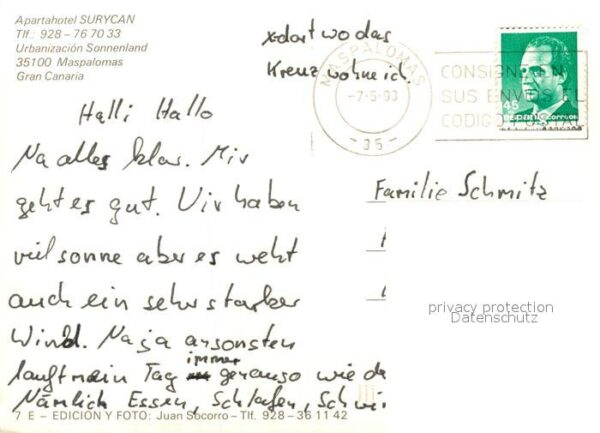 Apartahotel SURYCAN
Tlf.: 928 - 76 70 33
Urbanización Sonnenland
35100 Maspalomas
Gran Canaria
x dort wo das
Kreuz wohne ich.
MASPALOMAS
-7-5-93
-35-
CONSIGNE EN
SUS ENVIOS EL
CODIGO POSTAL
45
Halli Hallo
Na alles klar. Mir
geht es gut. Wir haben
viel sonne aber es weht
auch ein sehr starker
Wind. Naja ansonsten
immer
lauft mein Tag genauso wie da
Nämlich Essen, Schlafen, Schwi
Familie Schmitz
privacy protection
Datenschutz
7 E - EDICION Y FOTO: Juan Socorro - Tlf. 928 - 36 11 42